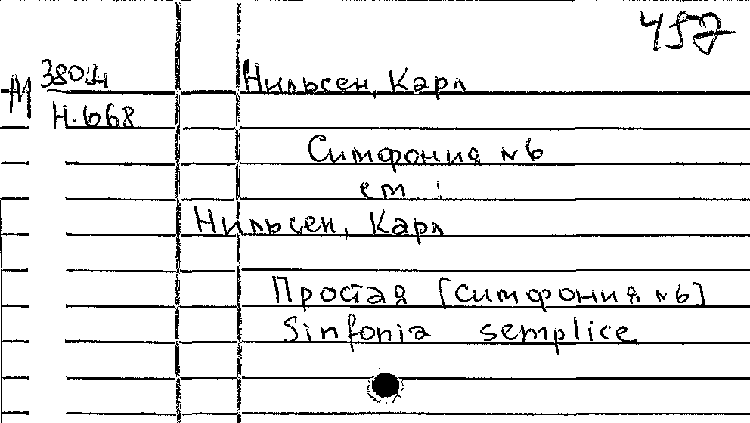 457
М
Нильсен, Карл
Н.668
Симфония №6
см:
Нильсен, Карл
Простая [симфония №6]
Sinfonia semplice